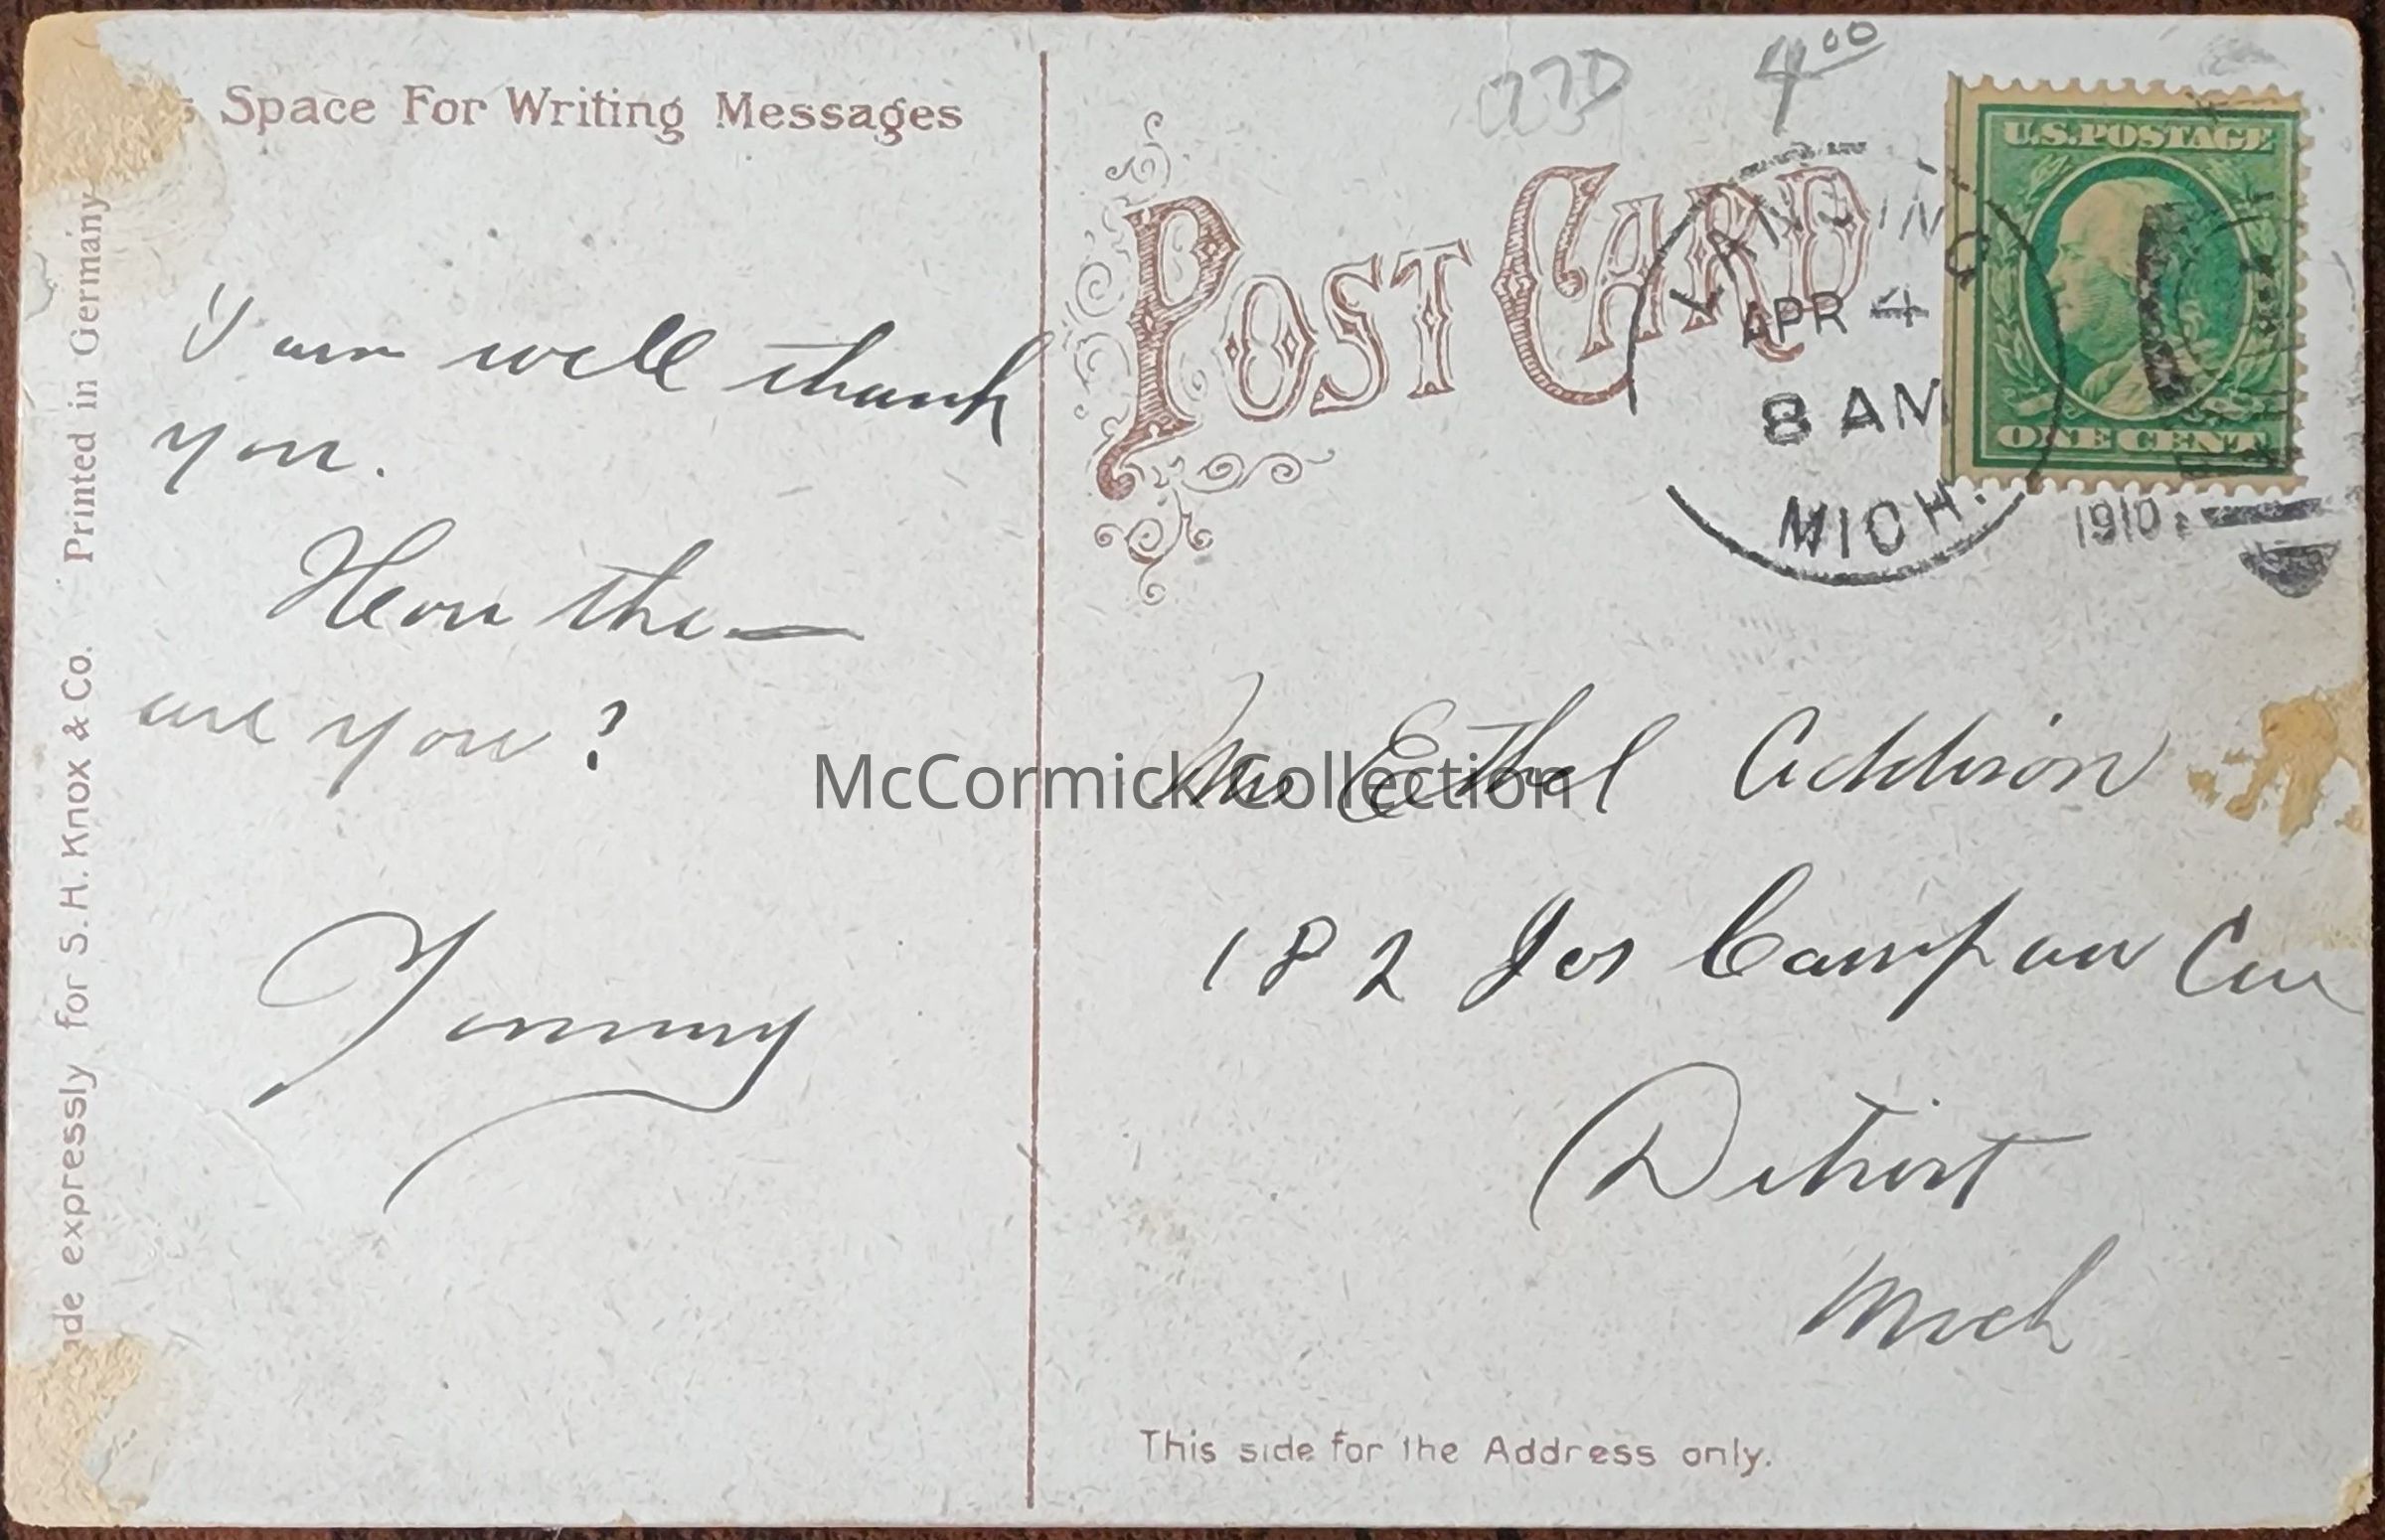 Space For Writing Messages
I am well thank
you.
How the —
are you?
Tommy
Made expressly for S.H. Knox & Co. Printed in Germany
4 00
POST CARD
LANSING
APR 4
8 AM
MICH.
1910
U.S. POSTAGE
ONE CENT
Ethel Addison
182 Jos Campau Ave
Detroit
Mich
This side for the Address only.
McCormick Collection